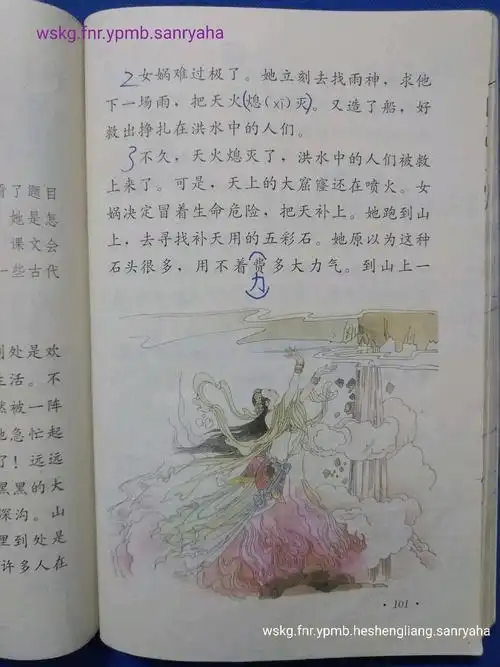 wskg.fnr.ypmb.sanryaha
2女娲难过极了。她立刻去找雨神，求他
下一场雨，把天火(熄（xī）灭)。又造了船，好
救出挣扎在洪水中的人们。
3不久，天火熄灭了，洪水中的人们被救
上来了。可是，天上的大窟窿还在喷火。女
娲决定冒着生命危险，把天补上。她跑到山
上，去寻找补天用的五彩石。她原以为这种
石头很多，用不着费多大力气。到山上一
力
看了题目
她是怎
课文会
一些古代
到处是欢
生活。不
然被一阵
她急忙起
了！远远
黑黑的大
深沟。山
里到处是
许多人在
·101·
wskg.fnr.ypmb.heshengliang.sanryaha